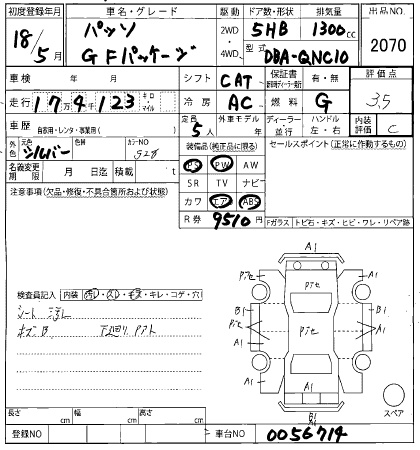 初度登録年月 車名・グレード 駆動 ドア数・形状 排気量 出品NO
18/5月 パッソ GFパッケージ 2WD・4WD 5HB 1300cc 2070
型式 DBA-QNC10
車検 年 月 シフト CAT 保証書 有・無 評価点
走行 17万4千123 キロ・マイル 冷房 AC 燃料 G 3.5
車歴 自家用・レンタ・事業用( ) 定員 5人 外車モデル 年 ディーラー・並行 ハンドル 左・右 内装評価 C
外色 元色 シルバー 色替 カラーNO S28 装備品(純正品に限る) セールスポイント(正常に作動するもの)
名義変更期限 月 日迄 積載 t PS PW AW
SR TV ナビ
注意事項(欠品・修復・不具合箇所および状態) カワ エアB ABS
R券 9510円
Fガラス トビ石・キズ・ヒビ・ワレ・リペア跡
検査員記入 内装 汚レ・スレ・キズ・キレ・コゲ・穴
シート 汚レ
キズB 下廻り
A1
Pテ
A1
Pテ
A1
B1
Pテ
A1
Pテ
B1
Pテ
A1
A1
A1
B1
A1
スペア
長さ cm 幅 cm 高さ cm
登録NO 車台NO 0056714